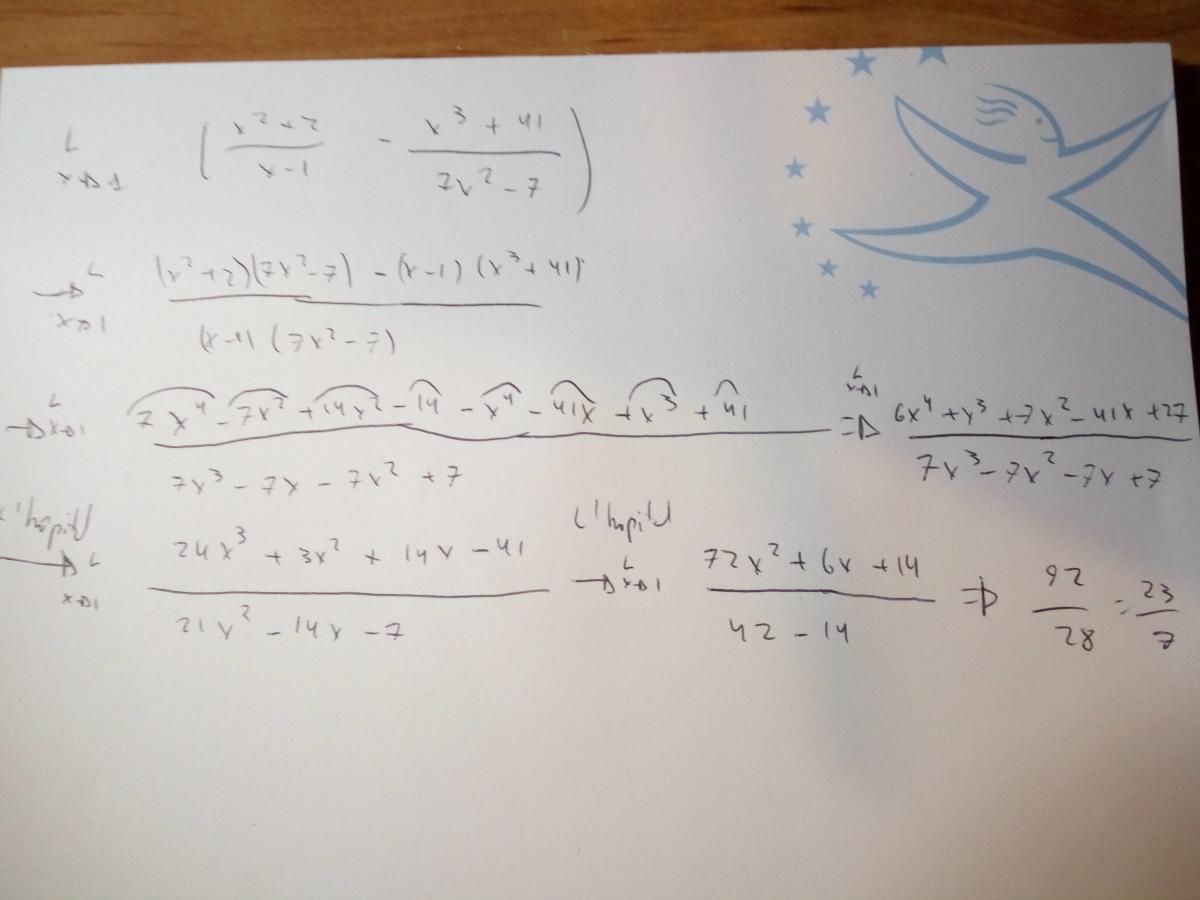 L x→1 ( (x² + 2)/(x - 1) - (x³ + 41)/(7x² - 7) )
→ L x→1 ((x² + 2)(7x² - 7) - (x - 1)(x³ + 41))/((x - 1)(7x² - 7))
→ L x→1 (7x⁴ - 7x² + 14x² - 14 - x⁴ - 41x + x³ + 41)/(7x³ - 7x - 7x² + 7) ⇒ L x→1 (6x⁴ + x³ + 7x² - 41x + 27)/(7x³ - 7x² - 7x + 7)
→ L x→1 (24x³ + 3x² + 14x - 41)/(21x² - 14x - 7) L'hopital → L x→1 (72x² + 6x + 14)/(42 - 14) ⇒ 92/28 = 23/7